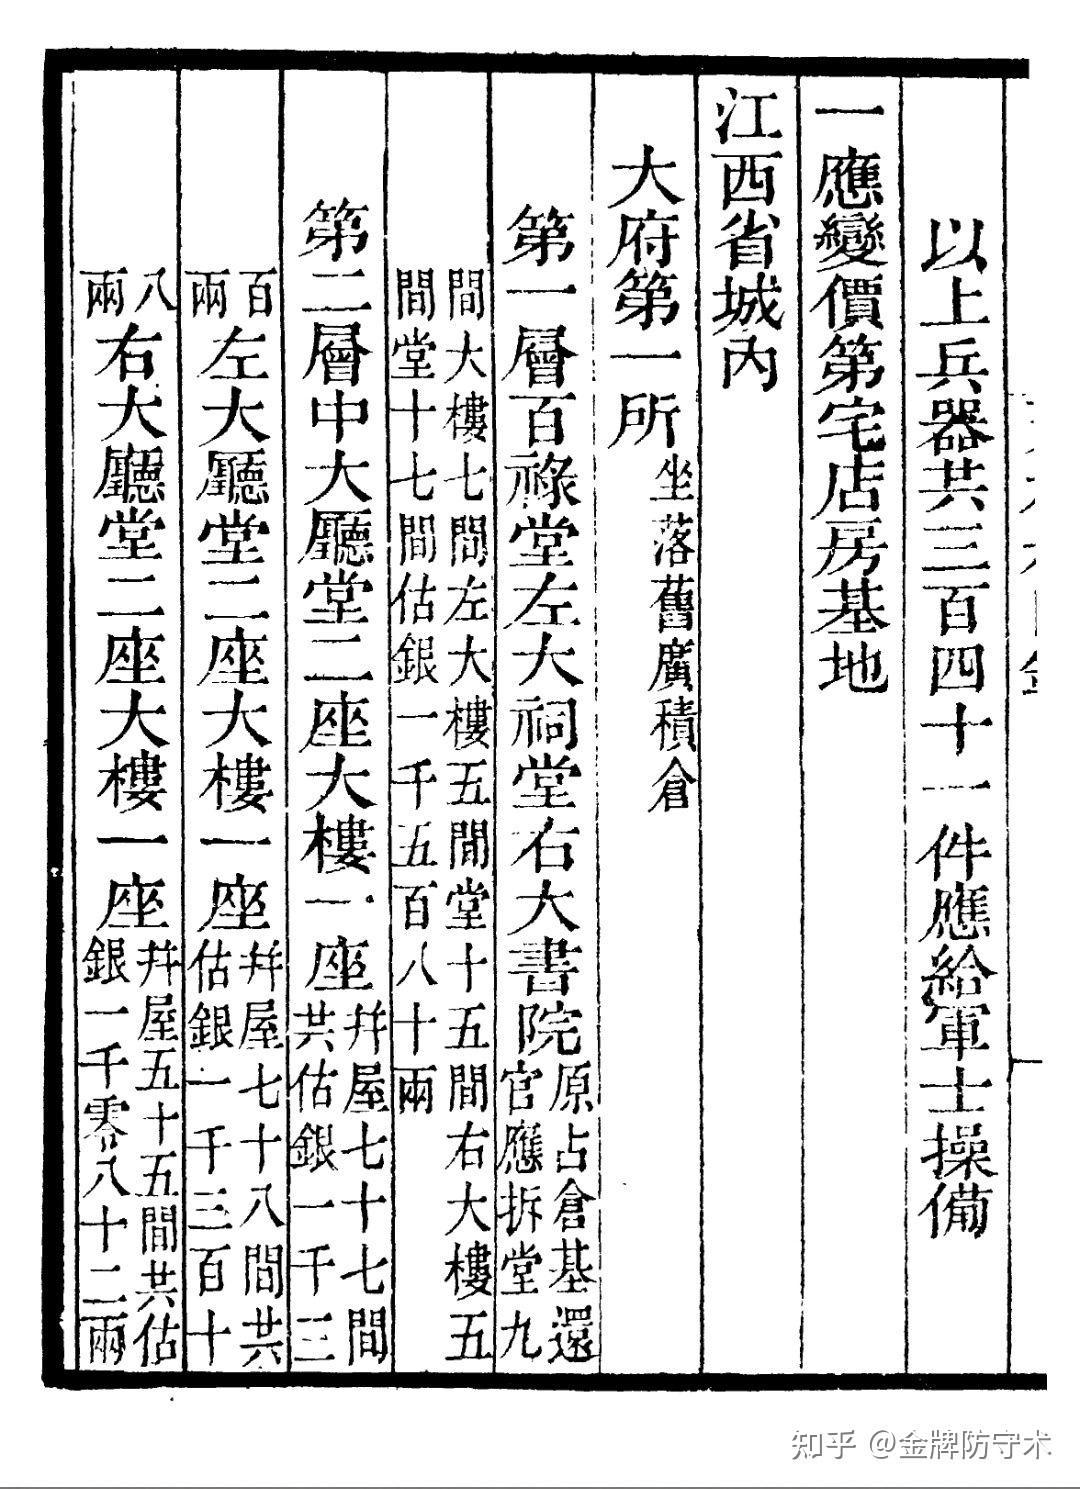 以上兵器共三百四十一件應給軍士操備
一應變價第宅店房基地
江西省城內
大府第一所坐落舊廣積倉
第一層百祿堂左大祠堂右大書院原占倉基還
官應拆堂九
間大樓七間左大樓五間堂十五間右大樓五
間堂十七間估銀一千五百八十兩
第二層中大廳堂二座大樓一座幷屋七十七間
共估銀一千三
百
兩
左大廳堂二座大樓一座幷屋七十八間共
估銀一千三百十
八
兩
右大廳堂二座大樓一座幷屋五十五間共估
銀一千零八十二兩
知乎 @金牌防守术